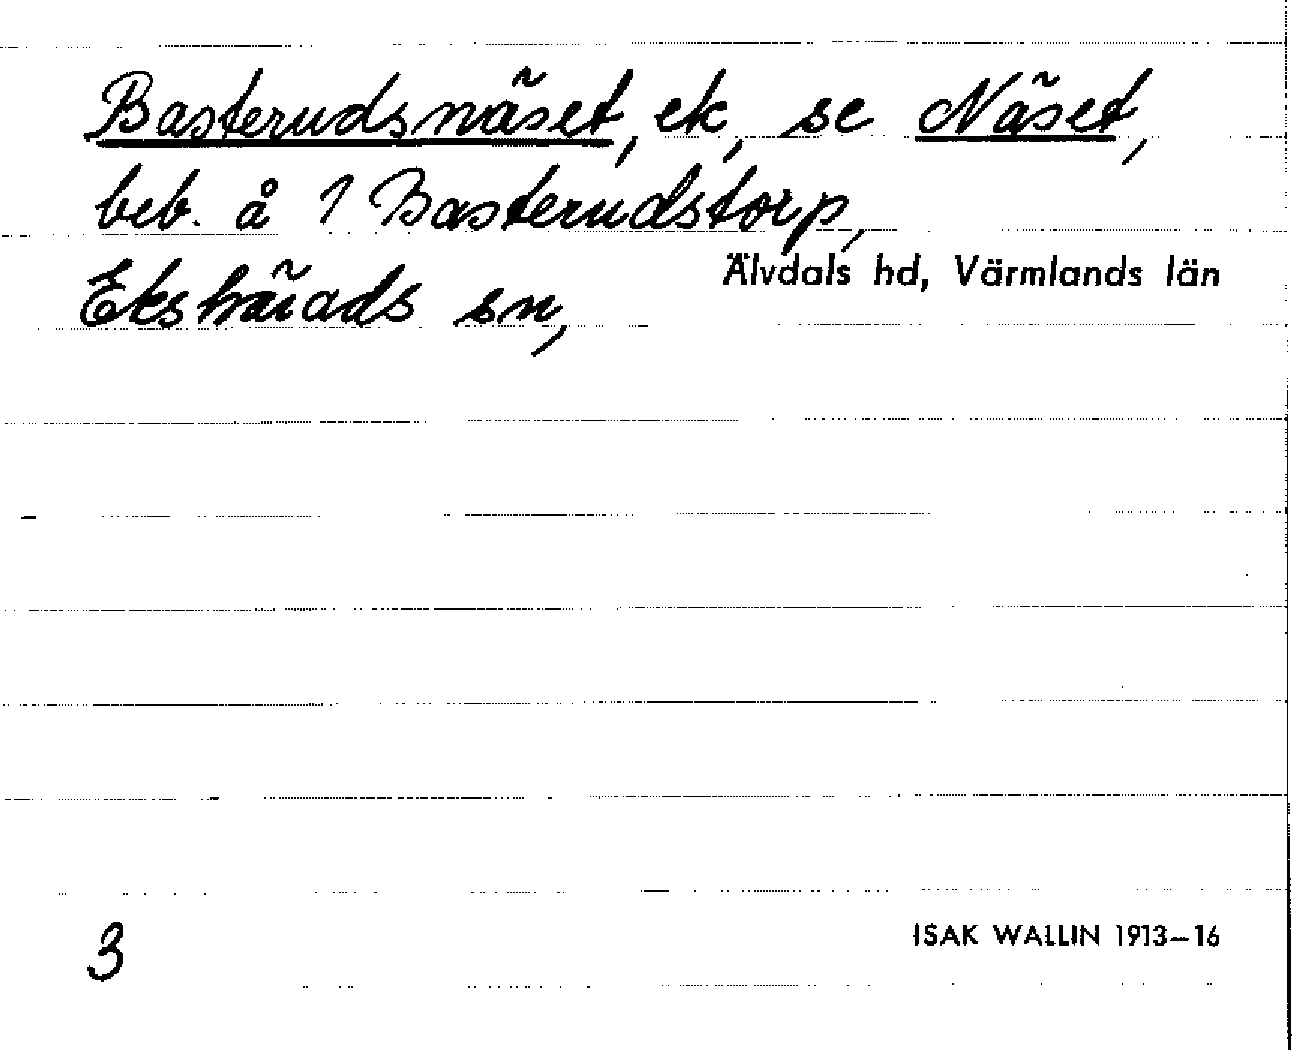 Basterudsnäset, ek, se Näset,
beb. å 1 Basterudstorp,
Ekshärads sn, Älvdals hd, Värmlands län
3 ISAK WALLIN 1913–16